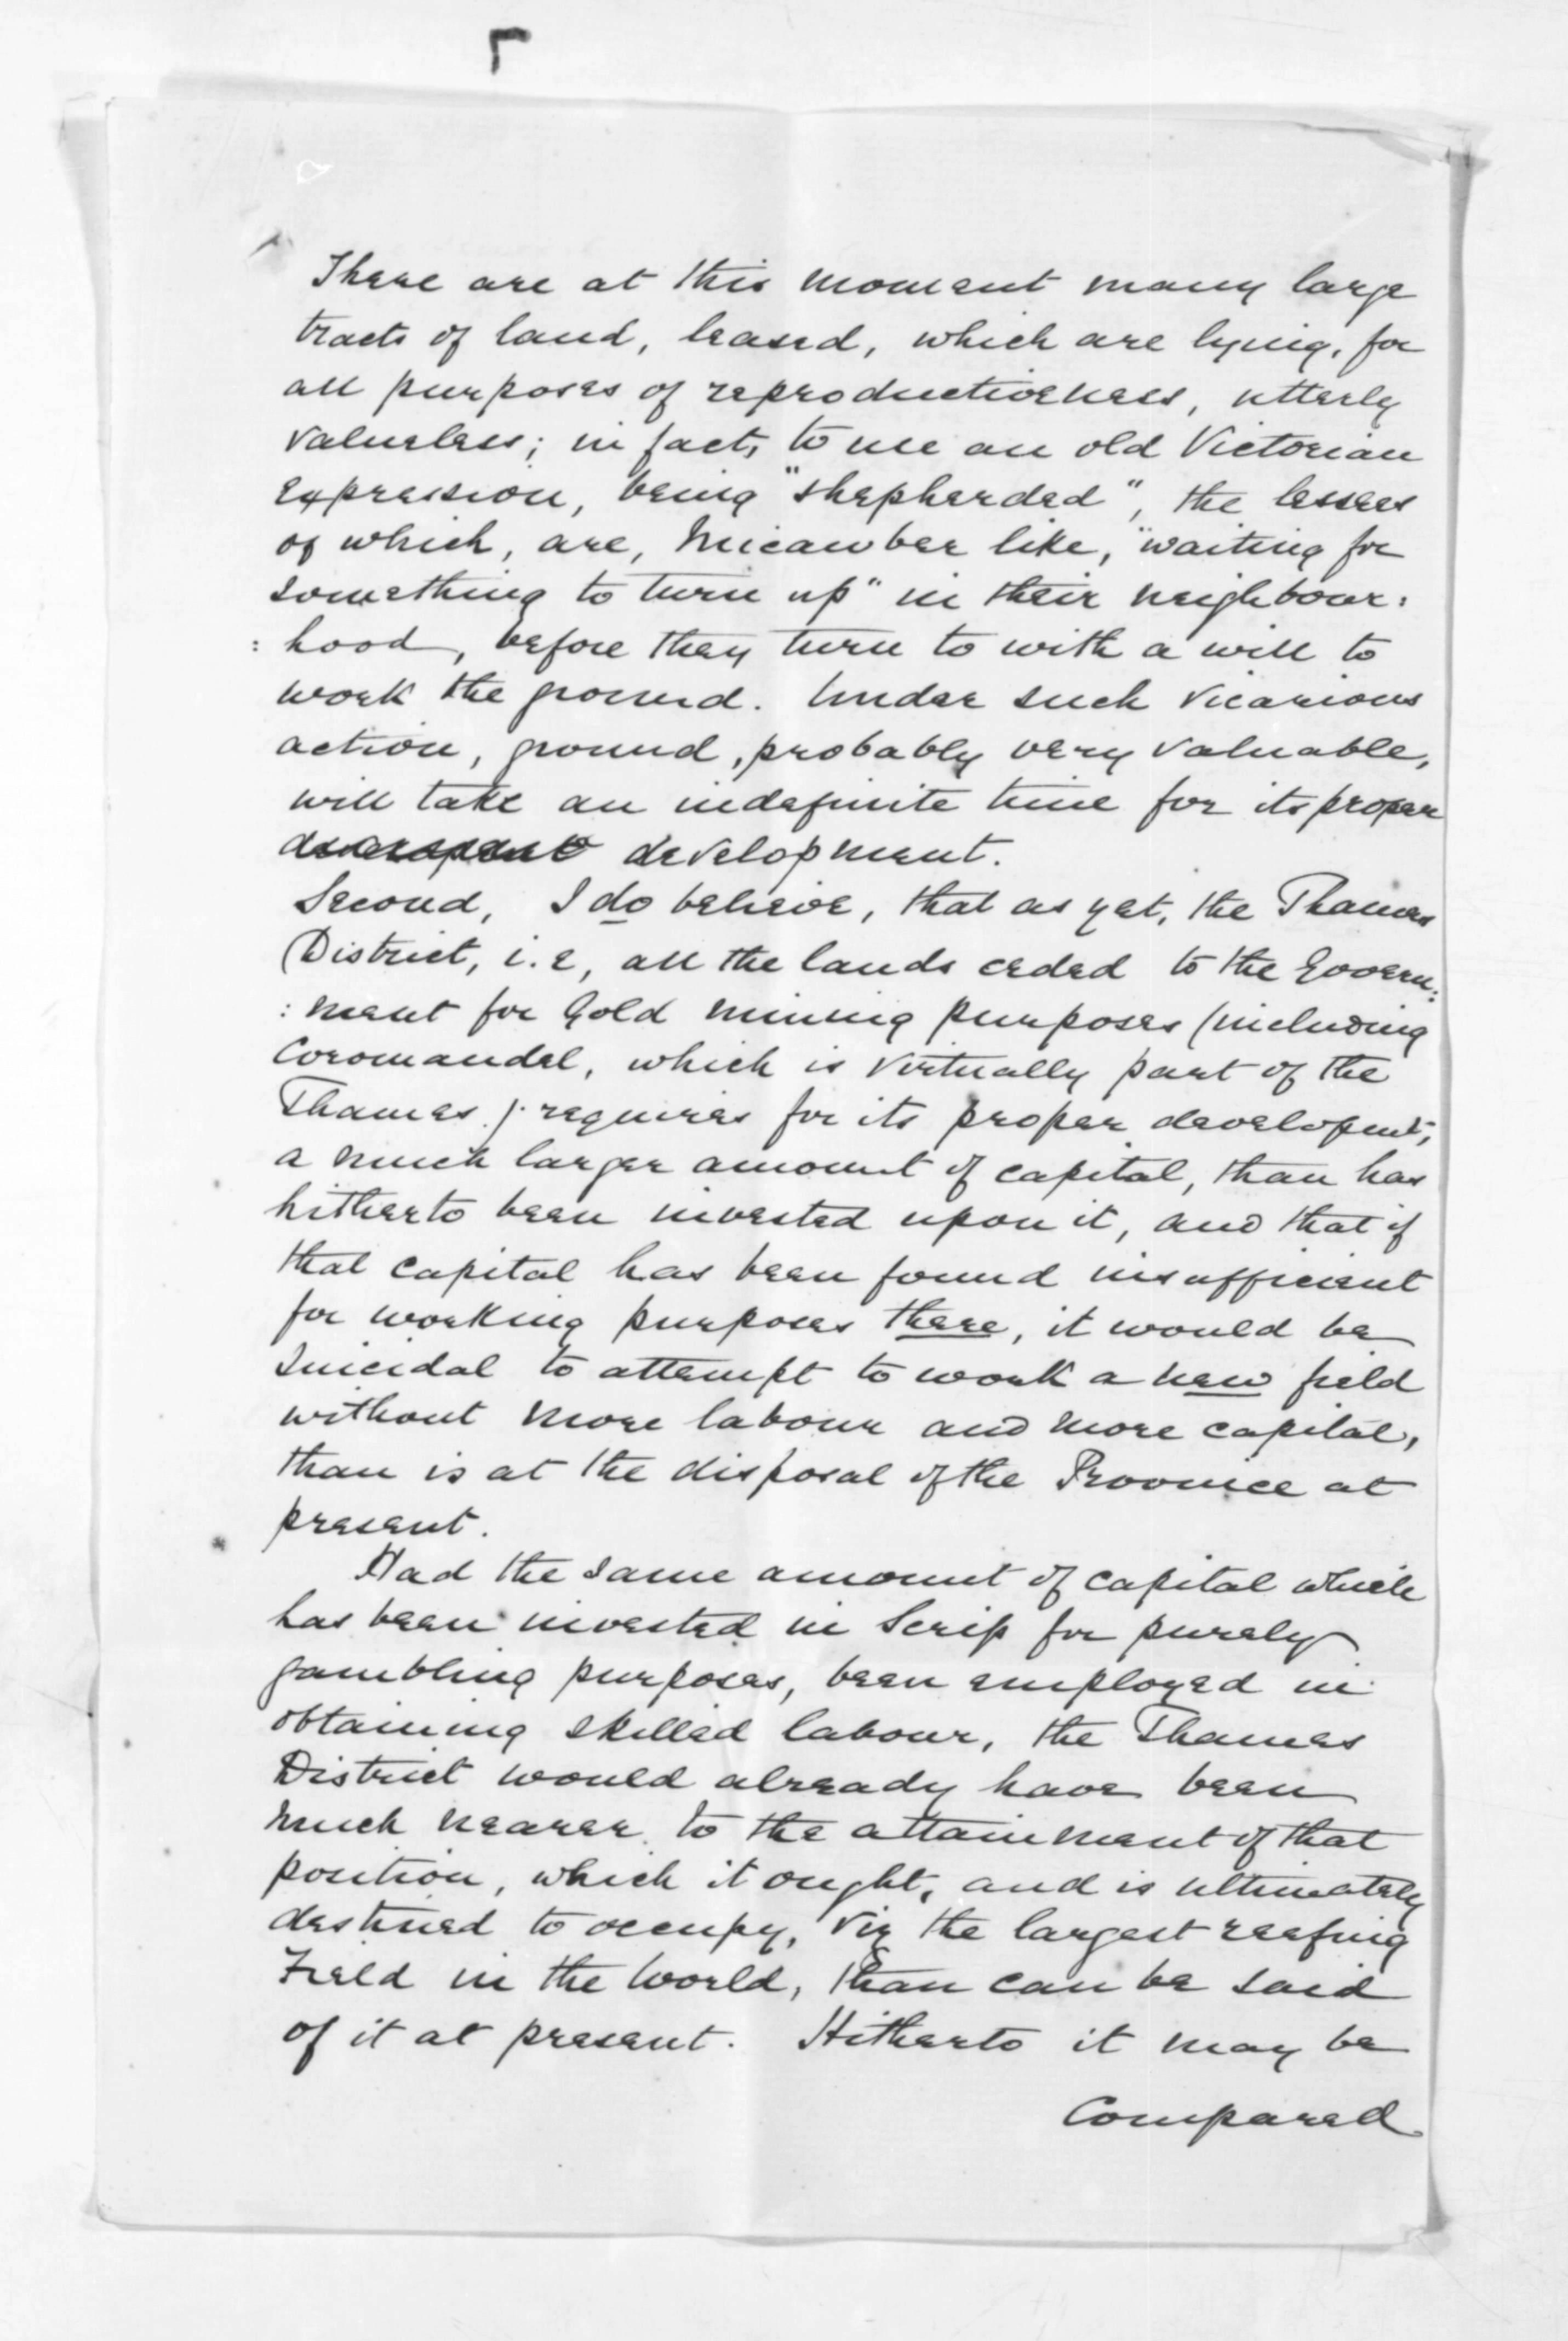 There are at this moment many large
tracts of land, leased, which are lying, for
all purposes of reproductiveness, utterly
valueless; in fact, to use an old Victorian
expression, being "shepherded", the lessees
of which, are, Micawber like, "waiting for
something to turn up" in their neighbour:
: hood, before they turn to with a will to
work the ground. Under such vicarious
action, ground, probably very valuable,
will take an indefinite time for its proper
development.
Second, I do believe, that as yet, the Thames
District, i.e, all the lands ceded to the Govern:
: ment for Gold mining purposes (including
Coromandel, which is virtually part of the
Thames.) requires for its proper developmt,
a much larger amount of capital, than has
hitherto been invested upon it, and that if
that capital has been found insufficient
for working purposes there, it would be
suicidal to attempt to work a new field
without more labour and more capital,
than is at the disposal of the Province at
present.
Had the same amount of capital which
has been invested in Scrip for purely
gambling purposes, been employed in
obtaining skilled labour, the Thames
District would already have been
much nearer to the attainment of that
position, which it ought, and is ultimately
destined to occupy, viz the largest reefing
Field in the World, than can be said
of it at present. Hitherto it may be
Compared